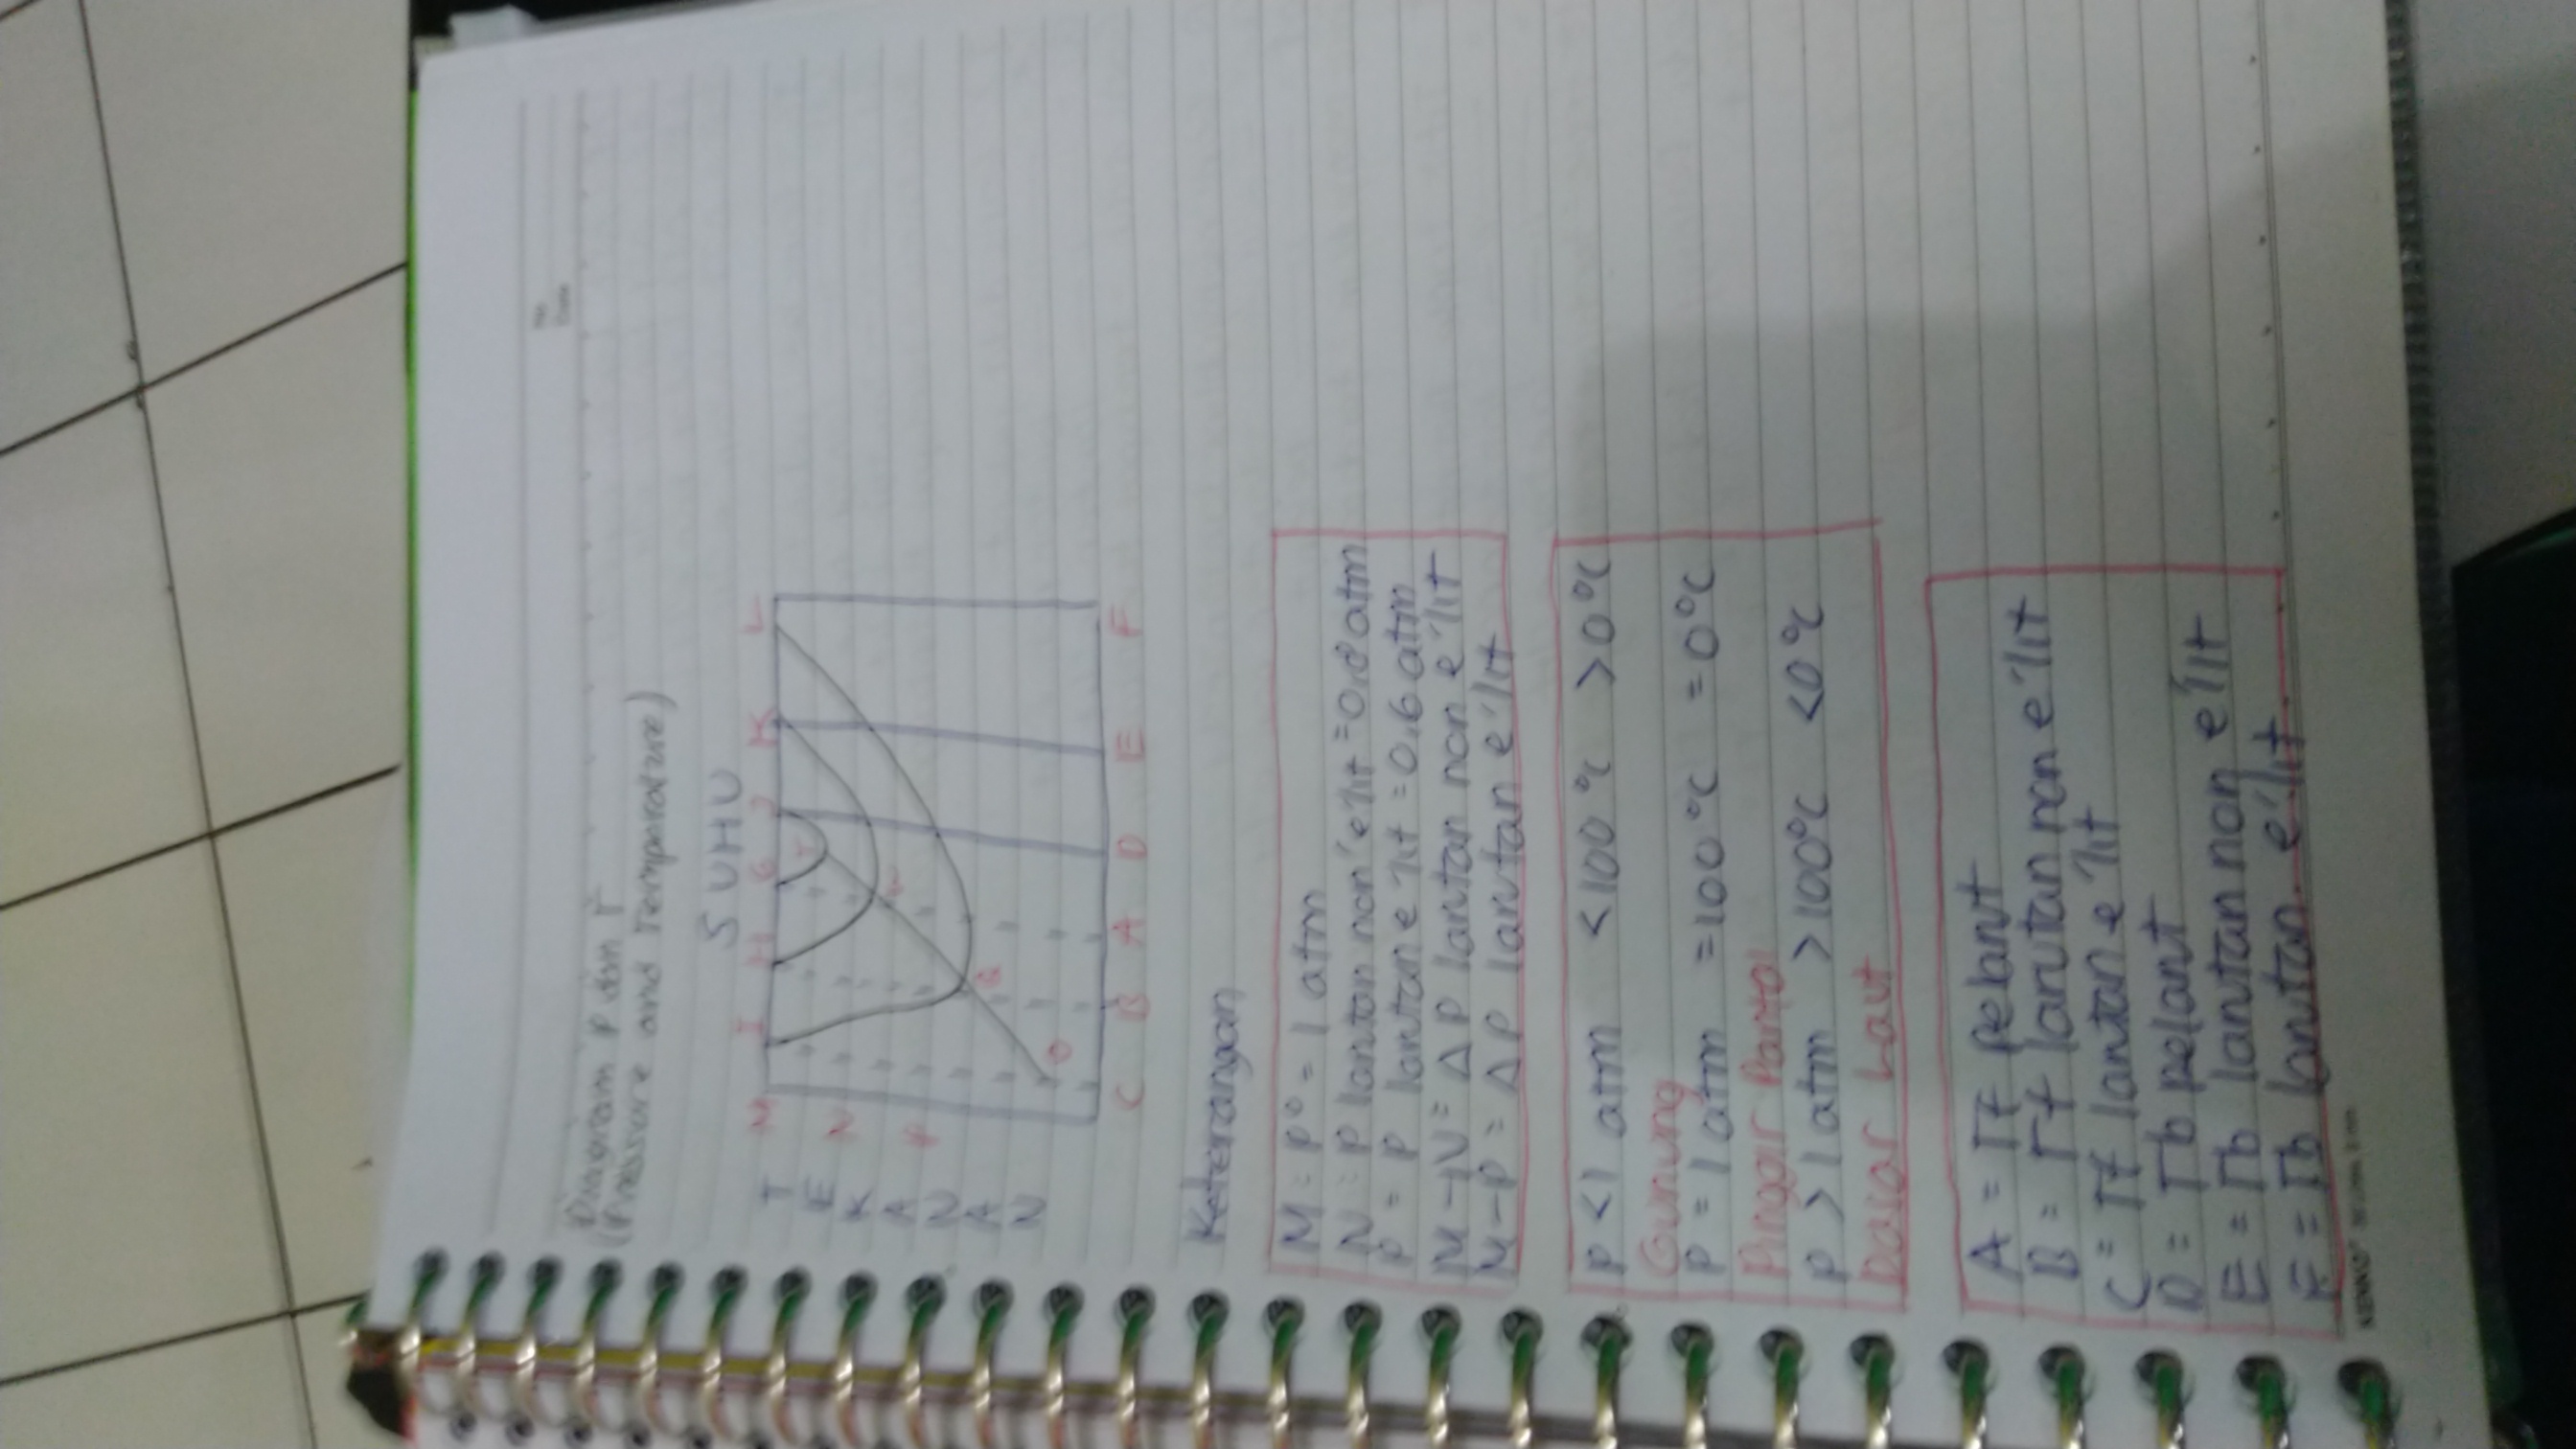 No.
Date
Diagram P dan T
(Pressure and Temperature)
SUHU
TEKANAN
M I H G J K L
T
N
P
Q
O
C B A D E F
Keterangan
M = P° = 1 atm
N = P larutan non e'lit = 0,8 atm
P = P larutan e'lit = 0,6 atm
M-N = ΔP larutan non e'lit
M-P = ΔP larutan e'lit
P < 1 atm < 100 °C > 0 °C
Gunung
P = 1 atm = 100 °C = 0 °C
Pinggir Pantai
P > 1 atm > 100 °C < 0 °C
Dasar Laut
A = Tf pelarut
B = Tf larutan non e'lit
C = Tf larutan e'lit
D = Tb pelarut
E = Tb larutan non e'lit
F = Tb larutan e'lit
KENKO